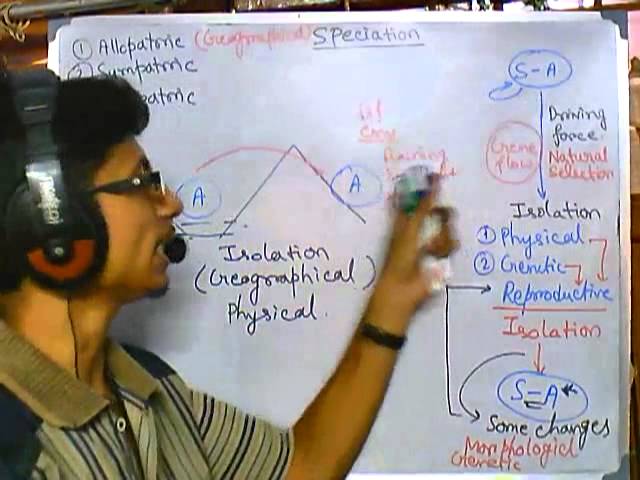 Speciation
① Allopatric (Geographical)
② Sympatric
patric
A
A
Isolation
(Geographical)
Physical.
S - A
Driving
force
Natural
Selection
Gene
flow
Isolation
① Physical
② Genetic
Reproductive
Isolation
S = A*
Some changes
Morphological
Genetic